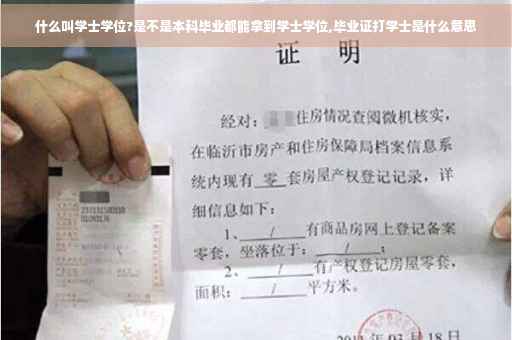 什么叫学士学位?是不是本科毕业都能拿到学士学位,毕业证打学士是什么意思
证 明
经对: 住房情况查阅微机核实,
在临沂市房产和住房保障局档案信息系
统内现有 零 套房屋产权登记记录,详
细信息如下:
1、 / 有商品房网上登记备案
零套,坐落位于: / ;
2、 / 有产权登记房屋零套,
面积: / 平方米。
月 18 日